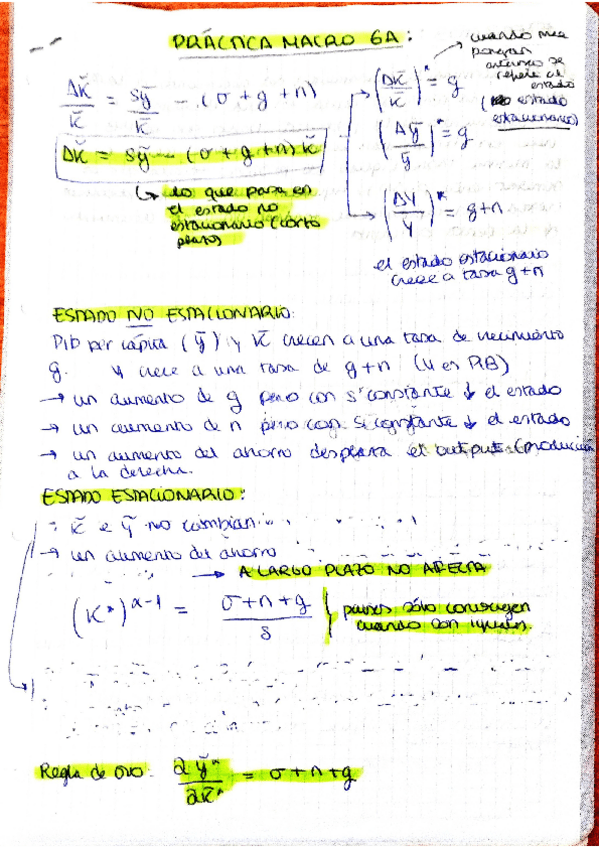 PRÁCTICA MACRO 6A:
cuando me pongan asterisco se refiere al estado (estado estacionario)
Δk̃/k̃ = sỹ/k̃ - (σ+g+n)
Δk̃ = sỹ - (σ+g+n)k̃
(Δk̃/k̃)* = g
(Δỹ/ỹ)* = g
(ΔY/Y)* = g+n
↳ lo que pasa en
el estado no
estacionario (corto
plazo)
el estado estacionario
crece a tasa g+n
ESTADO NO ESTACIONARIO:
Pib per cápita (ỹ) y k̃ crecen a una tasa de crecimiento
g. Y crece a una tasa de g+n (Y es PIB)
→ un aumento de g pero con s constante ↓ el estado
→ un aumento de n pero con s constante ↓ el estado
→ un aumento del ahorro desplaza el output (producción
a la derecha.
ESTADO ESTACIONARIO:
k̃ e ỹ no cambian
→ un aumento del ahorro
→ A LARGO PLAZO NO AFECTA
(K*)^α-1 = σ+n+g / s
países sólo convergen
cuando son iguales.
Regla de oro: ∂ỹ*/∂k̃* = σ+n+g